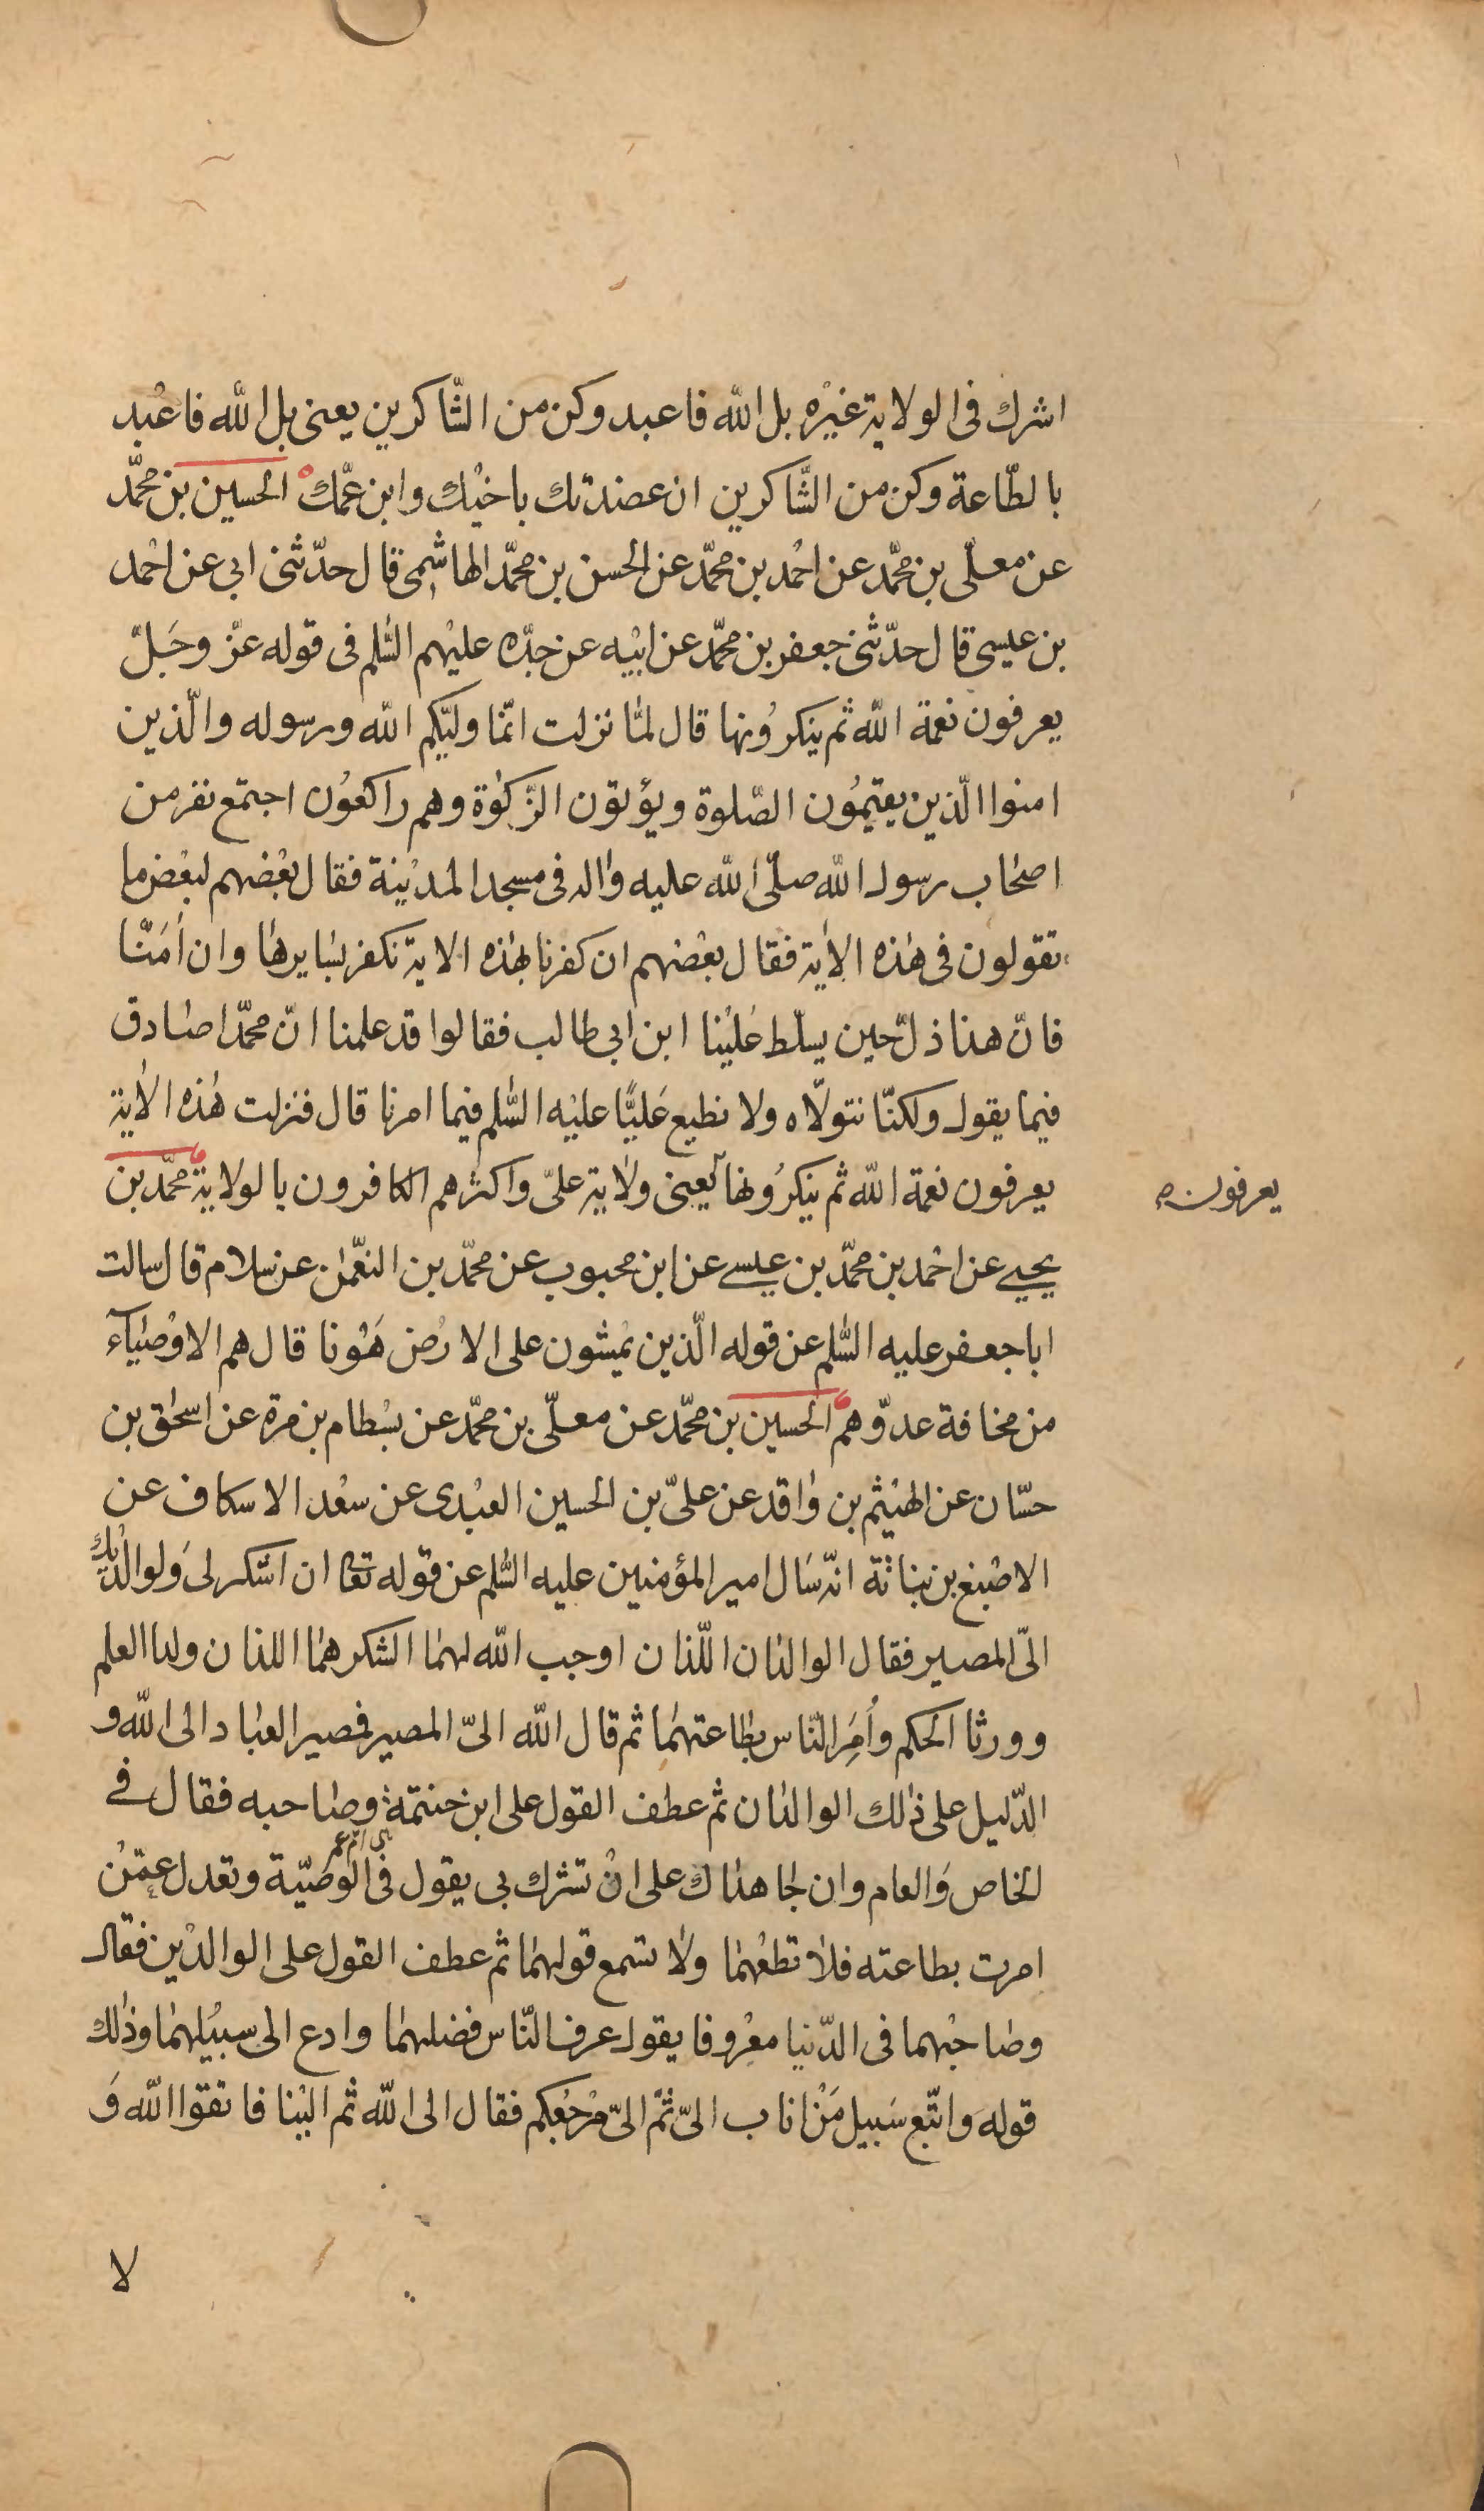 اشرك فى الولاية غيْره بل اللّه فاعبد وكن من الشّاكرين يعنى بل اللّه فاعْبد
بالطّاعة وكن من الشّاكرين ان عضدتك باخيْك وابن عمّك الحسين بن محمّد
عن معلّى بن محمّد عن احْمد بن محمّد عن الحسن بن محمّد الهاشمى قال حدّثنى ابى عن احْمد
بن عيسى قال حدّثنى جعفر بن محمّد عن ابيْه عن جدّه عليْهم السّلم فى قوله عزّ وجَلّ
يعرفون نعمة اللّه ثم ينكروُنها قال لمّا نزلت انّما وليّكم اللّه ورسوله والّذين
امنوا الّذين يقيموُن الصّلوة ويؤتون الزّكوٰة وهم راكعوُن اجتمع نفر من
اصحٰاب رسول اللّه صلّى اللّه عليه واٰله فى مسجد المديْنة فقال بعْضهم لبعْض ما
تقولون فى هٰذه الاٰية فقال بعْضهم ان كفرنا بهٰذه الاية نكفر بسٰايرهٰا وان اٰمَنّا
فانّ هذا ذلّ حين يسلّط عَليْنا ابن ابى طالب فقالوا قد علمنا انّ محمّدا صٰادق
فيما يقول ولكنّا نتولّاه ولا نطيع عَليًّا عليْه السّلم فيما امرنا قال فنزلت هٰذه الاٰية
يعرفون نعمة اللّه ثم ينكروُنها يعنى ولٰاية علىّ واكثرهم الكافرون بالولاية محمّد بن
يعرفون
يحيى عن احْمد بن محمّد بن عيسى عن ابن محبوب عن محمّد بن النعّمٰن عن سلام قال سالت
اباجعفر عليه السّلم عن قوله الّذين يمْشون على الارْض هَوْنا قال هم الاوْصيٰآء
من مخافة عدوّهم الحسين بن محمّد عن معلّى بن محمّد عن بسْطام بن مرة عن اسحٰق بن
حسّان عن الهيْثم بن وٰاقد عن علىّ بن الحسين العبْدى عن سعْد الاسكاف عن
الاصْبغ بن نباتة انّه سَال امير المؤمنين عليه السّلم عن قوله تعا ان اشكر لى وَلوالدْيك
الىّ المصير فقال الوالدٰان اللّذان اوجب اللّه لهمٰا الشكر همٰا اللذان ولدا العلم
وورثا الحكم وأُمِرَ النّاس بطٰاعتهمٰا ثم قال اللّه الىّ المصير فمصير العبٰاد الى اللّه و
الدّليل على ذٰلك الوالدٰان ثم عطف القول على ابن حنتمة وصٰاحبه فقال فى
الخاص وَالعام وان جاهدٰاك على انْ تشرك بى يقول فى الوصيّة وتعدل عمّنْ
امرت بطاعته فلٰا تطعْهمٰا ولٰا تسمع قولهمٰا ثم عطف القول على الوالديْن فقال
وصٰاحبْهما فى الدّنيا معْروفا يقول عرف النّاس فضلهمٰا وادع الى سبيْلهمٰا وذٰلك
قوله وَاتّبع سَبيل مَنْ اناب الىّ ثمّ الىّ مرْجعُكم فقال الى اللّه ثم اليْنا فاتقوا اللّه وَ
لا